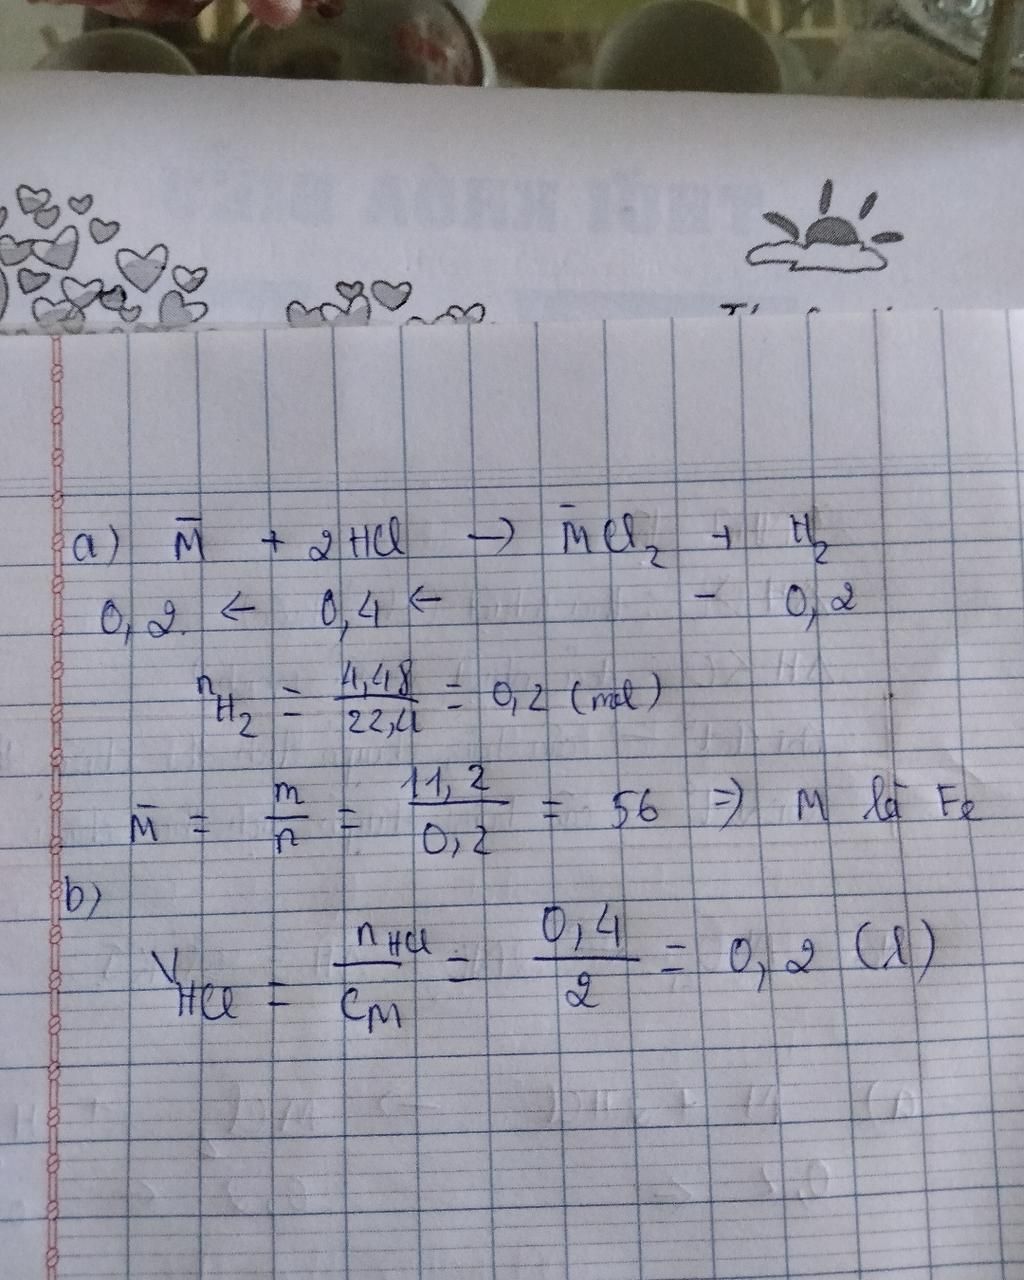 THỜI KHÓA BIỂU
a) M̄ + 2HCl → M̄Cl₂ + H₂
0,2 ← 0,4 ← - 0,2
n H₂ = 4,48/22,4 = 0,2 (mol)
M̄ = m/n = 11,2/0,2 = 56 => M là Fe
b)
V HCl = n HCl/CM = 0,4/2 = 0,2 (l)